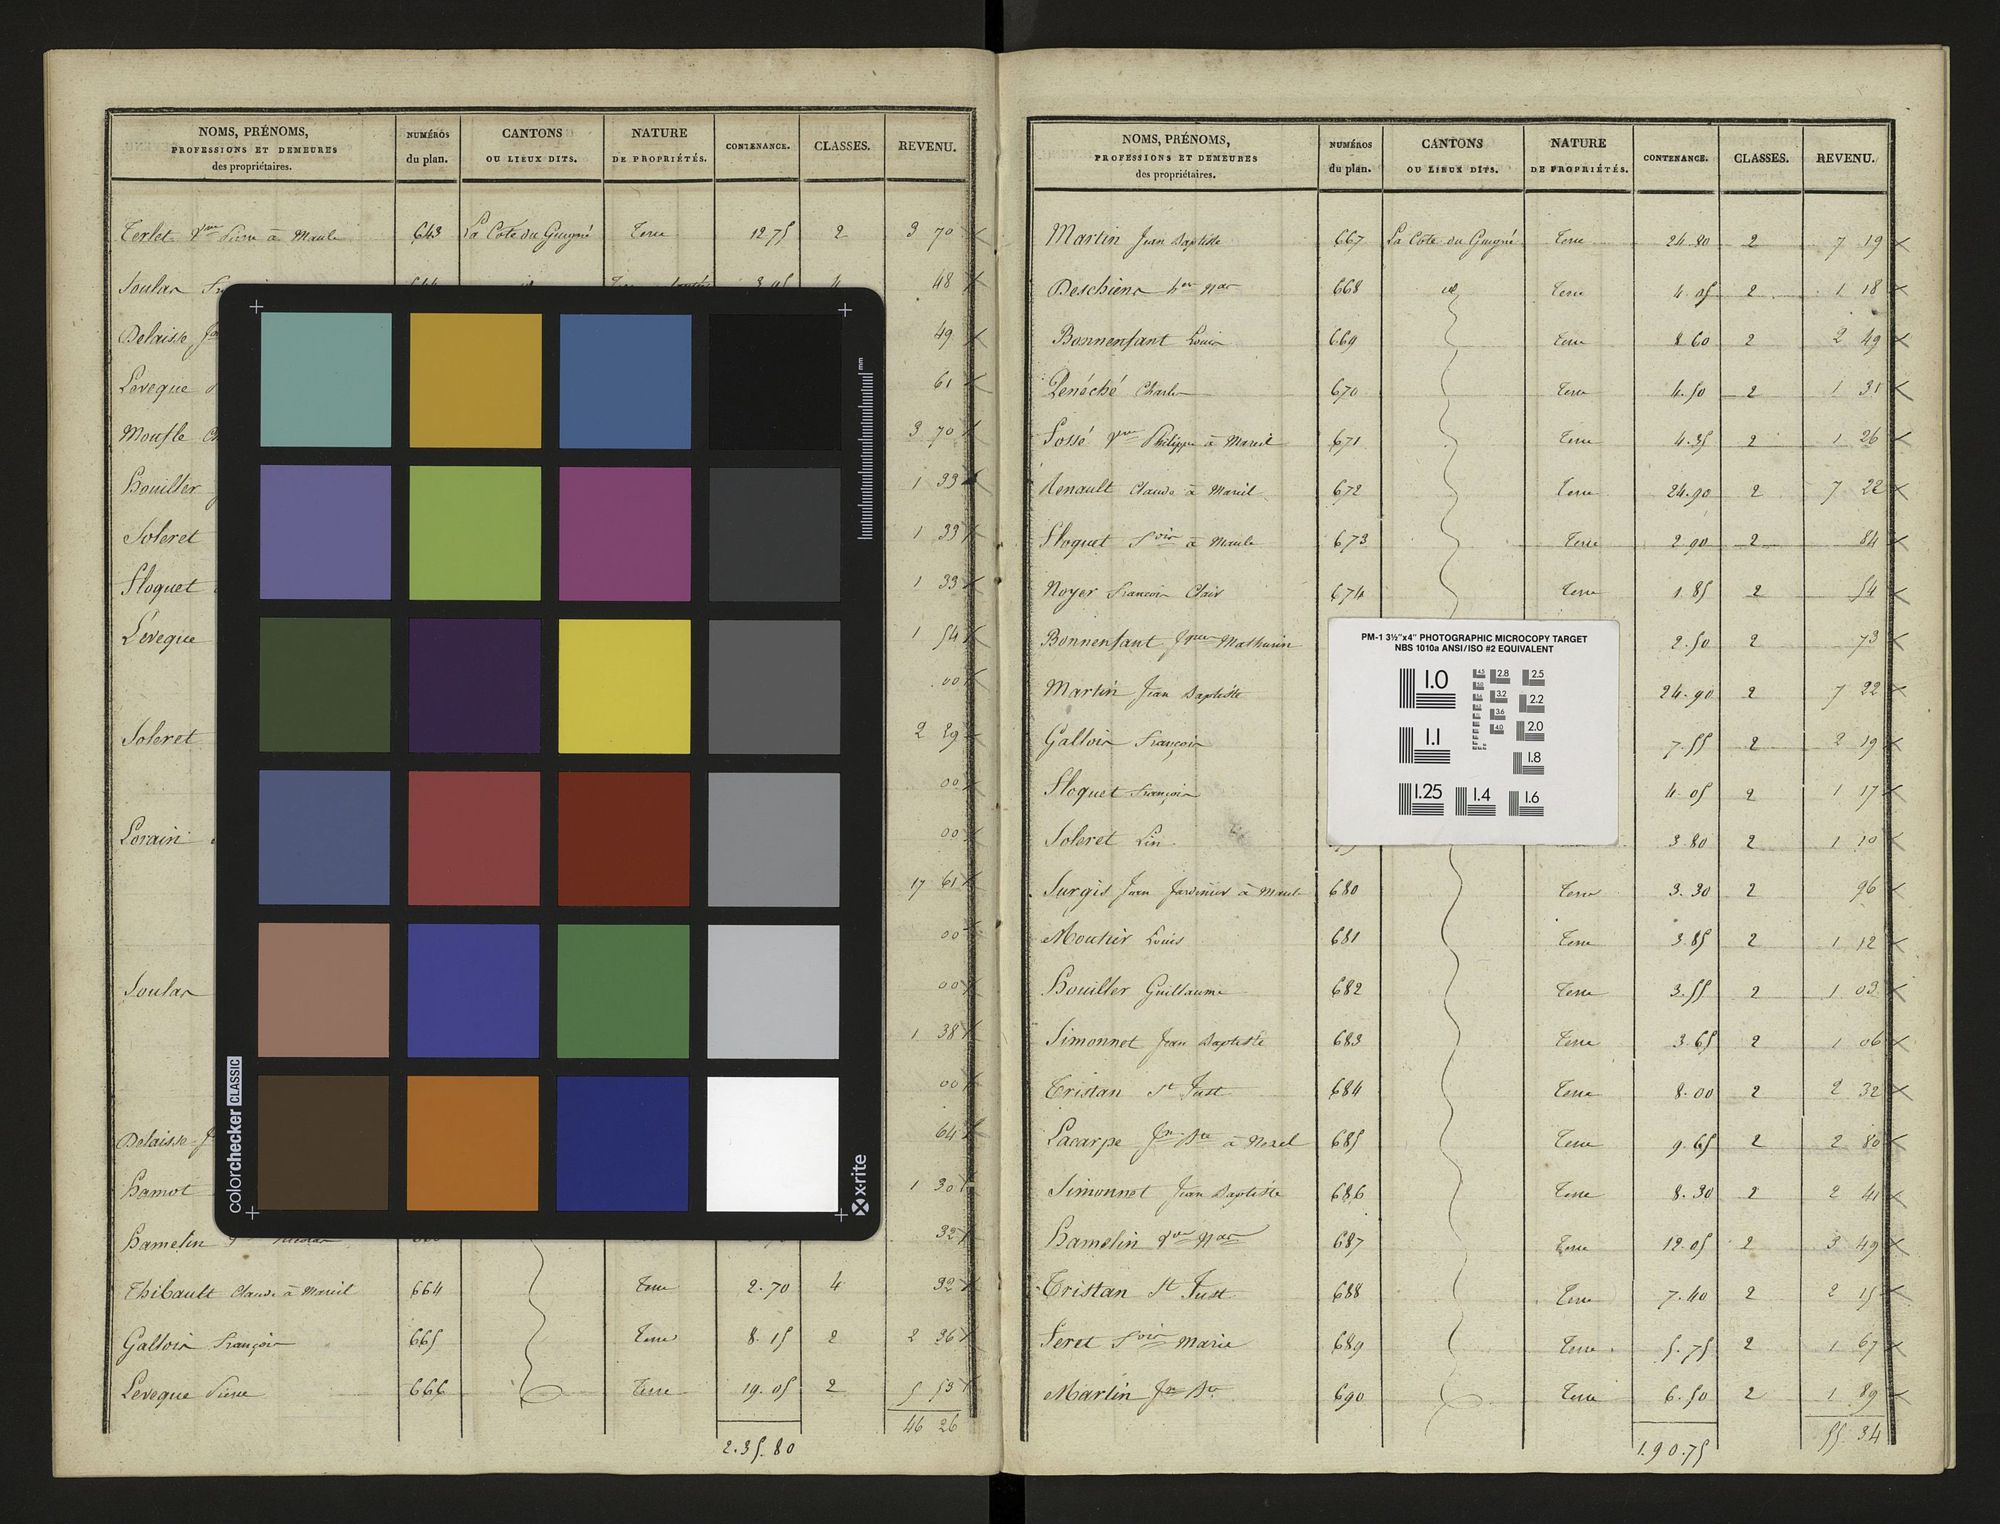 NOMS, PRÉNOMS, PROFESSIONS ET DEMEURES des propriétaires. NUMÉROS du plan. CANTONS OU LIEUX DITS. NATURE DE PROPRIÉTÉS. CONTENANCE. CLASSES. REVENU.
Terlet Vve Pierre à Maule 643 La Cote du Guigné Terre 12.75 2 3 70
Soulas 48
Delaisse 49
Leveque 61
Moufle 3 70
Houiller 1 33
Soleret 1 33
Floquet 1 33
Leveque 1 54
00
Soleret 2 29
00
Lorain 00
17 61
00
Soulas 00
1 38
00
Delaisse 64
Hamot 1 30
Hamelin Nicolas 32
Thibault Claude à Mareil 664 Terre 2.70 4 32
Galloir François 665 Terre 8.15 2 2 36
Leveque Pierre 666 Terre 19.05 2 5 53
2.35.80 46 26
colorchecker CLASSIC
x-rite
mm
NOMS, PRÉNOMS, PROFESSIONS ET DEMEURES des propriétaires. NUMÉROS du plan. CANTONS OU LIEUX DITS. NATURE DE PROPRIÉTÉS. CONTENANCE. CLASSES. REVENU.
Martin Jean Baptiste 667 La Cote du Guigné Terre 24.80 2 7 19
Deschiens 668 id Terre 4.05 2 1 18
Bonnenfant Louis 669 Terre 8.60 2 2 49
Peneché Charles 670 Terre 4.50 2 1 31
Fossé Vve Philippe à Mareil 671 Terre 4.35 2 1 26
Renault Claude à Mareil 672 Terre 24.90 2 7 22
Floquet à Maule 673 Terre 2.90 2 84
Noyer François Clair 674 Terre 1.85 2 54
Bonnenfant Jques Mathurin 2.50 2 73
Martin Jean Baptiste 24.90 2 7 22
Galloir François 7.55 2 2 19
Floquet François 4.05 2 1 17
Soleret Lin 3.80 2 1 10
Surgis Jean Jardinier à Maule 680 Terre 3.30 2 96
Moutier Louis 681 Terre 3.85 2 1 12
Houiller Guillaume 682 Terre 3.55 2 1 03
Simonnet Jean Baptiste 683 Terre 3.65 2 1 06
Tristan St Just 684 Terre 8.00 2 2 32
Lacarpe Jn Bte à 685 Terre 9.65 2 2 80
Simonnet Jean Baptiste 686 Terre 8.30 2 2 41
Hamelin 687 Terre 12.05 2 3 49
Tristan St Just 688 Terre 7.40 2 2 15
Feret Marie 689 Terre 5.75 2 1 67
Martin Jn Bte 690 Terre 6.50 2 1 89
1.90.75 55 34
PM-1 3½"x4" PHOTOGRAPHIC MICROCOPY TARGET
NBS 1010a ANSI/ISO #2 EQUIVALENT
1.0 2.8 2.5
3.2 2.2
3.6
1.1 4.0 2.0
1.8
1.25 1.4 1.6